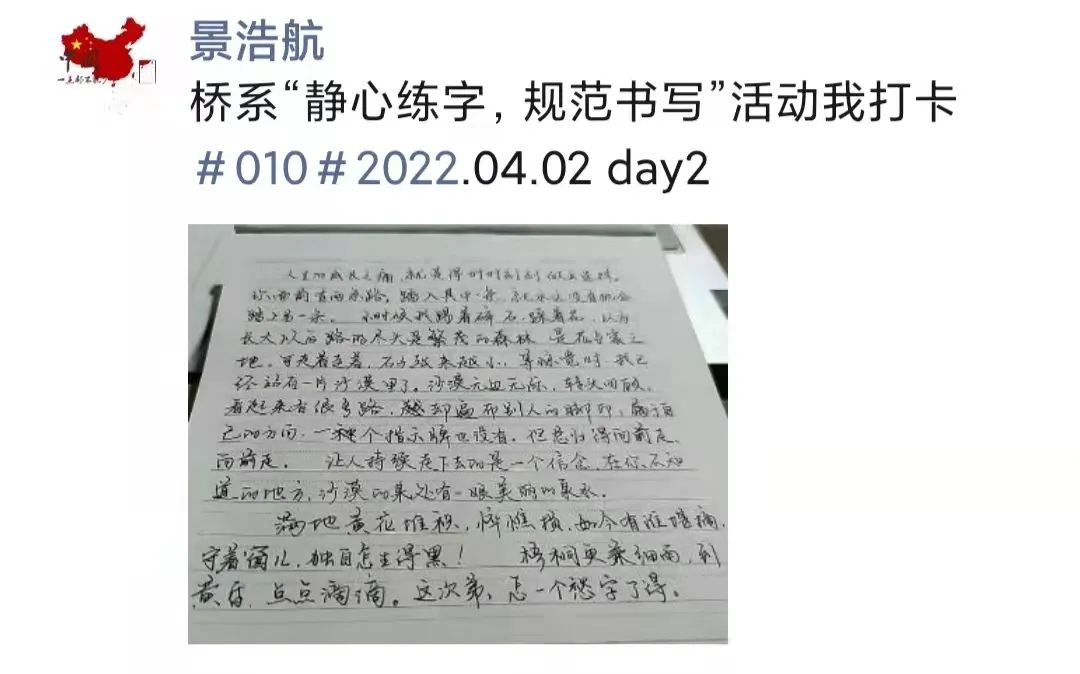 景浩航
桥系“静心练字，规范书写”活动我打卡
#010#2022.04.02 day2
人生的成长之痛，就是得时时刻刻做出选择。
你面前有两条路，踏入其中一条，就永远没有机会
踏上另一条。 小时候我踢着碎石，踩着花，以为
长大以后路的尽头是繁茂的森林 是花与雾之
地，可走着走着，石子越来越小，等惊觉时，我已
经站在一片沙漠里了。沙漠无边无际，转头四顾，
看起来有很多路，却遍布别人的脚印，属于自
己的方向，一个指示牌也没有。但总归得向前走，
向前走。 让人持续走下去的是一个信念，在你不知
道的地方，沙漠的某处有一眼美丽的泉水。
满地黄花堆积，憔悴损，如今有谁堪摘，
守着窗儿，独自怎生得黑！ 梧桐更兼细雨，到
黄昏，点点滴滴。这次第，怎一个愁字了得。